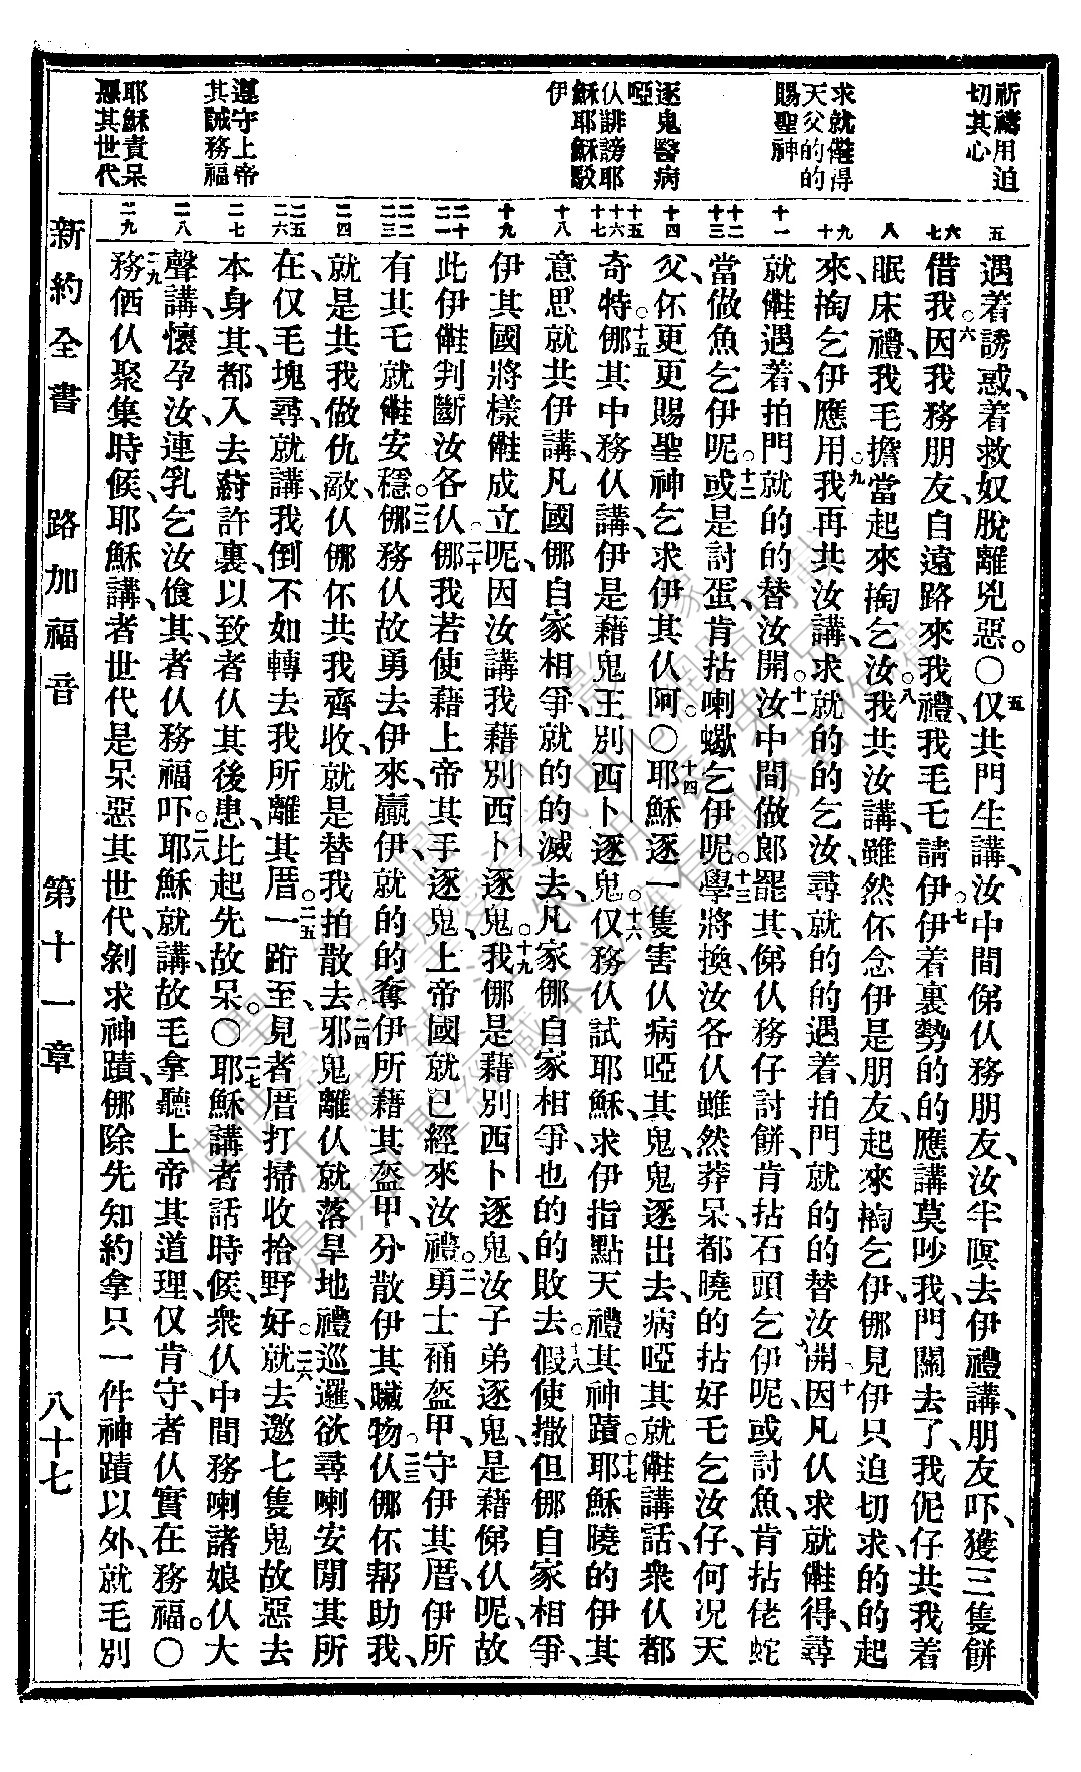 祈禱用迫
切其心
求就㑚得
天父的的
賜聖神
逐鬼醫病
啞
仈誹謗耶
穌耶穌駁
伊
遵守上帝
其誡務福
耶穌責呆
惡其世代
五
六七
八
九十
十一
十二十三
十四
十五十六十七
十八
十九
二十二一
二二二三
二四
二五二六
二七
二八
二九
遇着誘惑、着救奴脫離兇惡。〇五仅共門生講、汝中間俤仈務朋友、汝半暝去伊禮講、朋友吓、獲三隻餅
借我。六因我務朋友、自遠路來我禮、我毛乇請伊。七伊着裏勢的的應講、莫吵我、門關去了、我伲仔共我着
眠床禮、我毛擔當起來掏乞汝。八我共汝講、雖然伓念伊是朋友、起來掏乞伊、㑚見伊只迫切求、的的起
來、掏乞伊應用。九我再共汝講、求就的的乞汝、尋就的的遇着、拍門就的的替汝開。十因凡仈求就㑚得、尋
就㑚遇着、拍門就的的替汝開。十一汝中間做郎罷其、俤仈務仔討餅、肯拈石頭乞伊呢、或討魚、肯拈佬蛇
當做魚乞伊呢。十二或是討蛋、肯拈喇蠍乞伊呢。十三學將換汝各仈雖然莽呆、都曉的拈好乇乞汝仔、何况天
父、伓更更賜聖神乞求伊其仈阿。〇十四耶穌逐一隻害仈病啞其鬼、鬼逐出去、病啞其就㑚講話、衆仈都
奇特。十五㑚其中務仈講、伊是藉鬼王別西卜逐鬼。十六仅務仈試耶穌、求伊指點天禮其神蹟。十七耶穌曉的伊其
意思、就共伊講、凡國㑚自家相爭、就的的滅去、凡家㑚自家相爭、也的的敗去。十八假使撒但㑚自家相爭、
伊其國將樣㑚成立呢、因汝講我藉別西卜逐鬼。十九我㑚是藉別西卜逐鬼、汝子弟逐鬼、是藉俤仈呢、故
此伊㑚判斷汝各仈。二十㑚我若使藉上帝其手逐鬼、上帝國就已經來汝禮。二一勇士䘼盔甲、守伊其厝、伊所
有其乇就㑚安穩。二二㑚務仈故勇去伊來、贏伊、就的的奪伊所藉其盔甲、分散伊其贓物。二三仈㑚伓帮助我、
就是共我做仇敵、仈㑚伓共我齊收、就是替我拍散去。二四邪鬼離仈、就落旱地禮巡邏、欲尋喇安閒其所
在、仅毛塊尋、就講、我倒不如轉去我所離其厝。二五一跡至、見者厝打掃收拾野好。二六就去邀七隻鬼故惡去
本身其、都入去蔚許裏、以致者仈其後患、比起先故呆。〇二七耶穌講者話時候、衆仈中間務喇諸娘仈大
聲講、懷孕汝、連乳乞汝飡其、者仈務福吓。二八耶穌就講、故毛拿聽上帝其道理、仅肯守、者仈實在務福。〇
二九務㑔仈聚集時候、耶穌講、者世代是呆惡其世代、剝求神蹟、㑚除先知約拿只一件神蹟以外、就毛別
新約全書
路加福音
第十一章
八十七